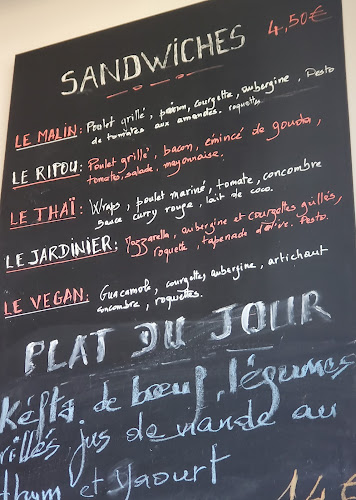 SANDWICHES 4,50€
LE MALIN: Poulet grillé, poivron, courgette, aubergine, Pesto
de tomates aux amandes. roquette.
LE RIPOU: Poulet grillé, bacon, émincé de gouda,
tomates, salade, mayonnaise.
LE THAÏ: Wraps, poulet mariné, tomate, concombre
sauce curry rouge, lait de coco.
LE JARDINIER: Mozzarella, aubergine et courgettes grillés,
roquette, tapenade d'olive. Pesto.
LE VEGAN: Guacamole, courgettes, aubergine, artichaut
concombre, roquettes.
PLAT DU JOUR
Kéfta de bœuf, légumes
rillés jus de viande au
thym et yaourt
14€